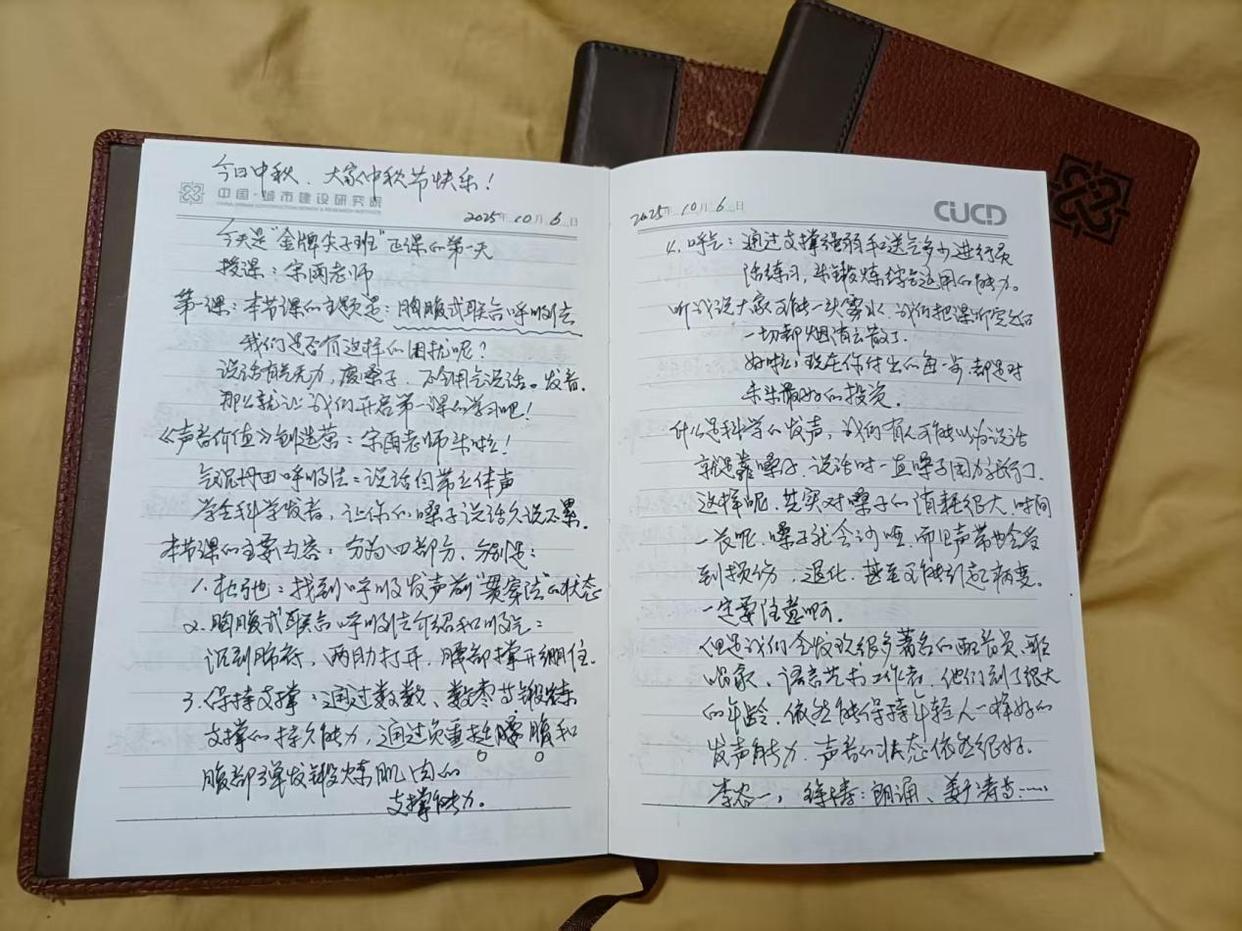 今日中秋、大家中秋节快乐!
中国·城市建设研究院
2025年10月6日
今天是"金牌尖子班"正课的第一天
授课:宋雨老师
第一课:本节课的主题是:胸腹式联合呼吸法
我们是否有这样的困扰呢?
说话有气无力,废嗓子、不会用气说话。发音。
那么就让我们开启第一课的学习吧!
《声音价值》创造营:宋雨老师来啦!
气沉丹田呼吸法:说话自带立体声
学会科学发音,让你的嗓子说话久说不累。
本节课的主要内容:分为四部分,分别是:
1.松弛:找到呼吸发声前"贯穿法"的状态
2.胸腹式联合呼吸法介绍和吸气:
沉到肺底,两肋打开,腰部撑开绷住。
3.保持支撑:通过数数、数枣等锻炼
支撑的持久能力,通过负重 腰腹和
腹部弹发锻炼肌肉的
支撑能力。
2025年10月6日
CUCD
4.呼气:通过支撑强弱和送气多少进行灵
活练习,来锻炼综合运用的能力。
听我说大家可能一头雾水,我们把课听完之后
一切都烟消云散了。
好啦,现在你付出的每一步,都是对
未来最好的投资。
什么是科学的发声,我们有人可能以为说话
就是靠嗓子,说话时一直嗓子用力就行了。
这样呢,其实对嗓子的消耗很大,时间
一长呢,嗓子就会沙哑,而且声带也会受
到损伤、退化、甚至可能引起病变。
一定要注意啊。
但是我们会发现很多著名的配音员、歌
唱家、语言艺术工作者,他们到了很大
的年龄,依然能保持年轻人一样好的
发声能力,声音的状态依然很好。
李谷一,徐涛:朗诵、姜 等……